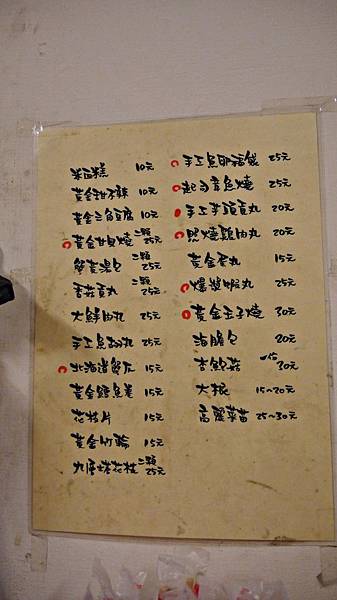 米血糕 10元
黃金甜不辣 10元
黃金三角豆腐 10元
黃金魚燒 二顆25元
蟹黃湯包 二顆25元
香菇貢丸 二顆25元
大鮮肉丸 25元
手工魚丸 25元
北海道蟹 15元
黃金鱈魚卷 15元
花枝片 15元
黃金竹輪 15元
花枝 二顆25元
手工魚卵福袋 25元
起司章魚燒 25元
手工芋頭貢丸 20元
照燒雞肉丸 20元
黃金魚丸 15元
爆漿蝦丸 25元
黃金玉子燒 30元
海膽包 20元
杏鮑菇 一份30元
大根 15~20元
高麗菜苗 25~30元